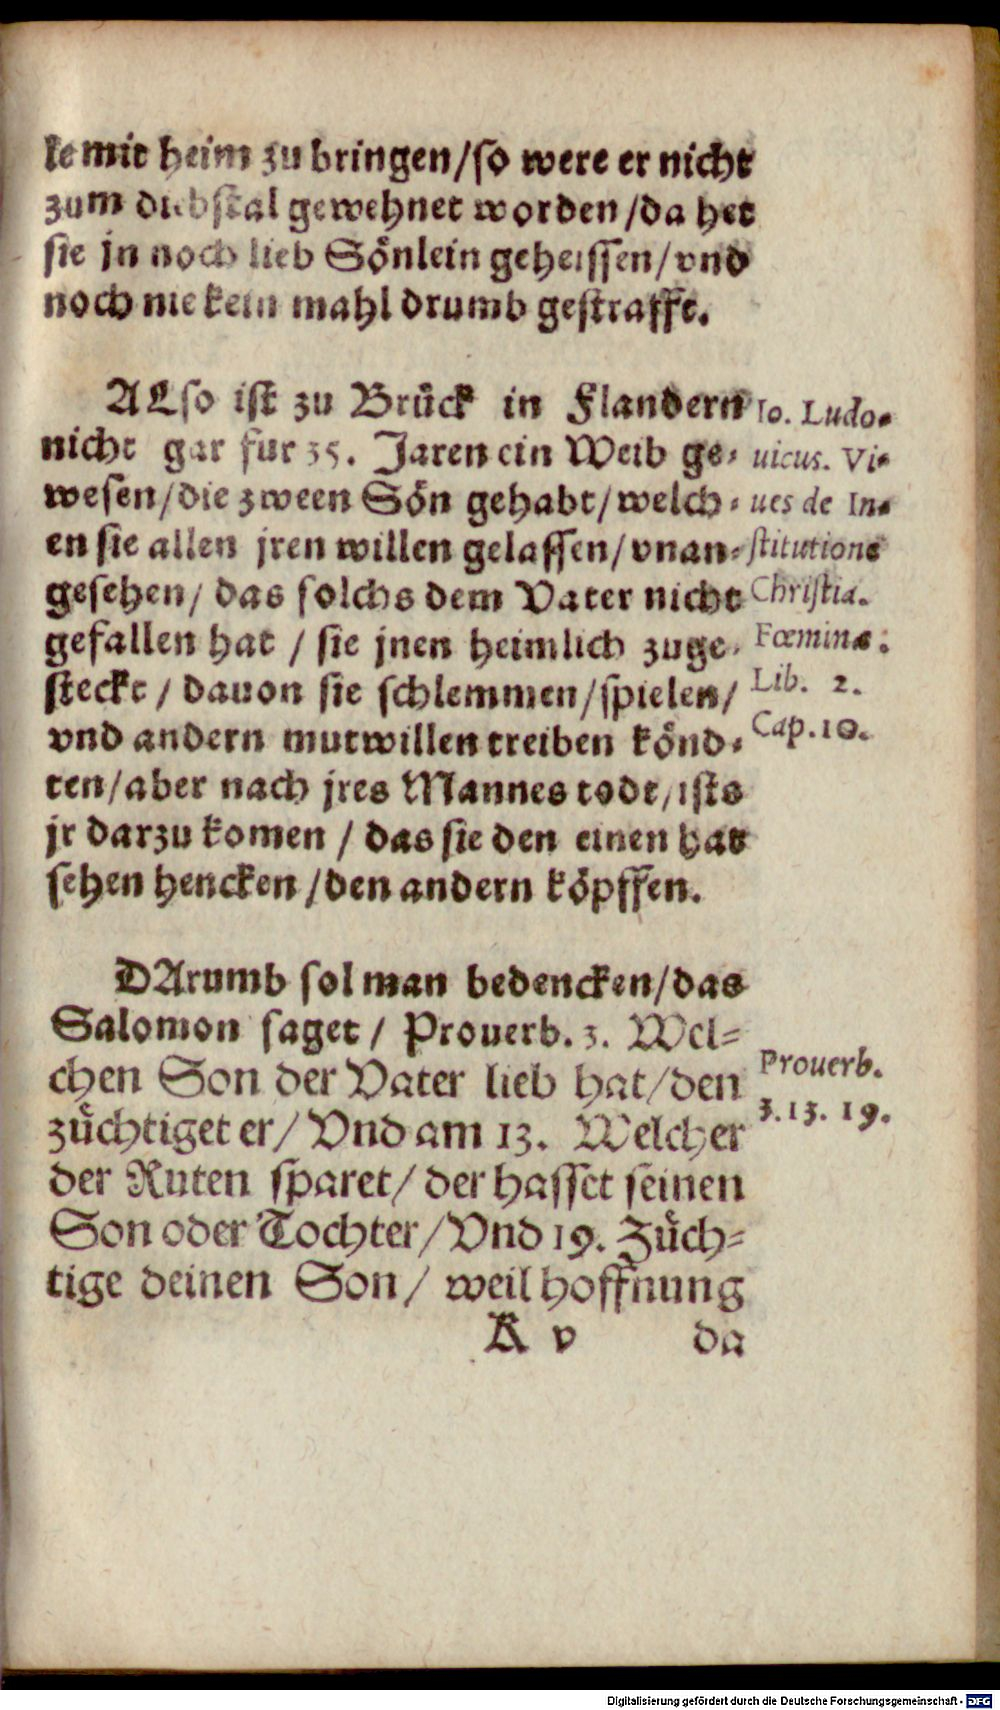 ke mit heim zu bringen/so were er nicht
zum diebstal gewehnet worden/da het
sie jn noch lieb Sönlein geheissen/vnd
noch nie kein mahl drumb gestrafft.
ALso ist zu Brück in Flandern
nicht gar fur 35. Jaren ein Weib ge-
wesen/die zween Sön gehabt/welch-
en sie allen jren willen gelassen/vnan-
gesehen/das solchs dem Vater nicht
gefallen hat/sie jnen heimlich zuge-
steckt/dauon sie schlemmen/spielen/
vnd andern mutwillen treiben könd-
ten/aber nach jres Mannes todt/ists
jr darzu komen/das sie den einen hat
sehen hencken/den andern köpffen.
Io. Ludo-
uicus. Vi-
ues de In-
stitutione
Christia.
Fœminæ.
Lib. 2.
Cap. 10.
DArumb sol man bedencken/das
Salomon saget/Prouerb. 3. Wel-
chen Son der Vater lieb hat/den
züchtiget er/Vnd am 13. Welcher
der Ruten sparet/der hasset seinen
Son oder Tochter/Vnd 19. Züch-
tige deinen Son/weil hoffnung
Prouerb.
3. 13. 19.
K v
da
Digitalisierung gefördert durch die Deutsche Forschungsgemeinschaft - DFG